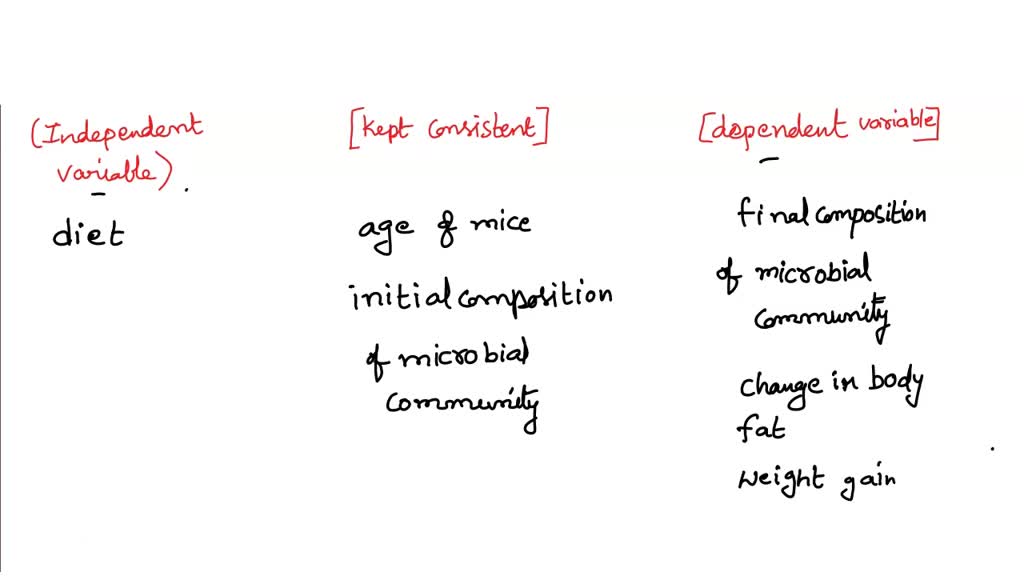 (Independent
variable)
diet
[kept consistent]
age of mice
initial composition
of microbial
community
[dependent variable]
final composition
of microbial
community
change in body
fat
weight gain